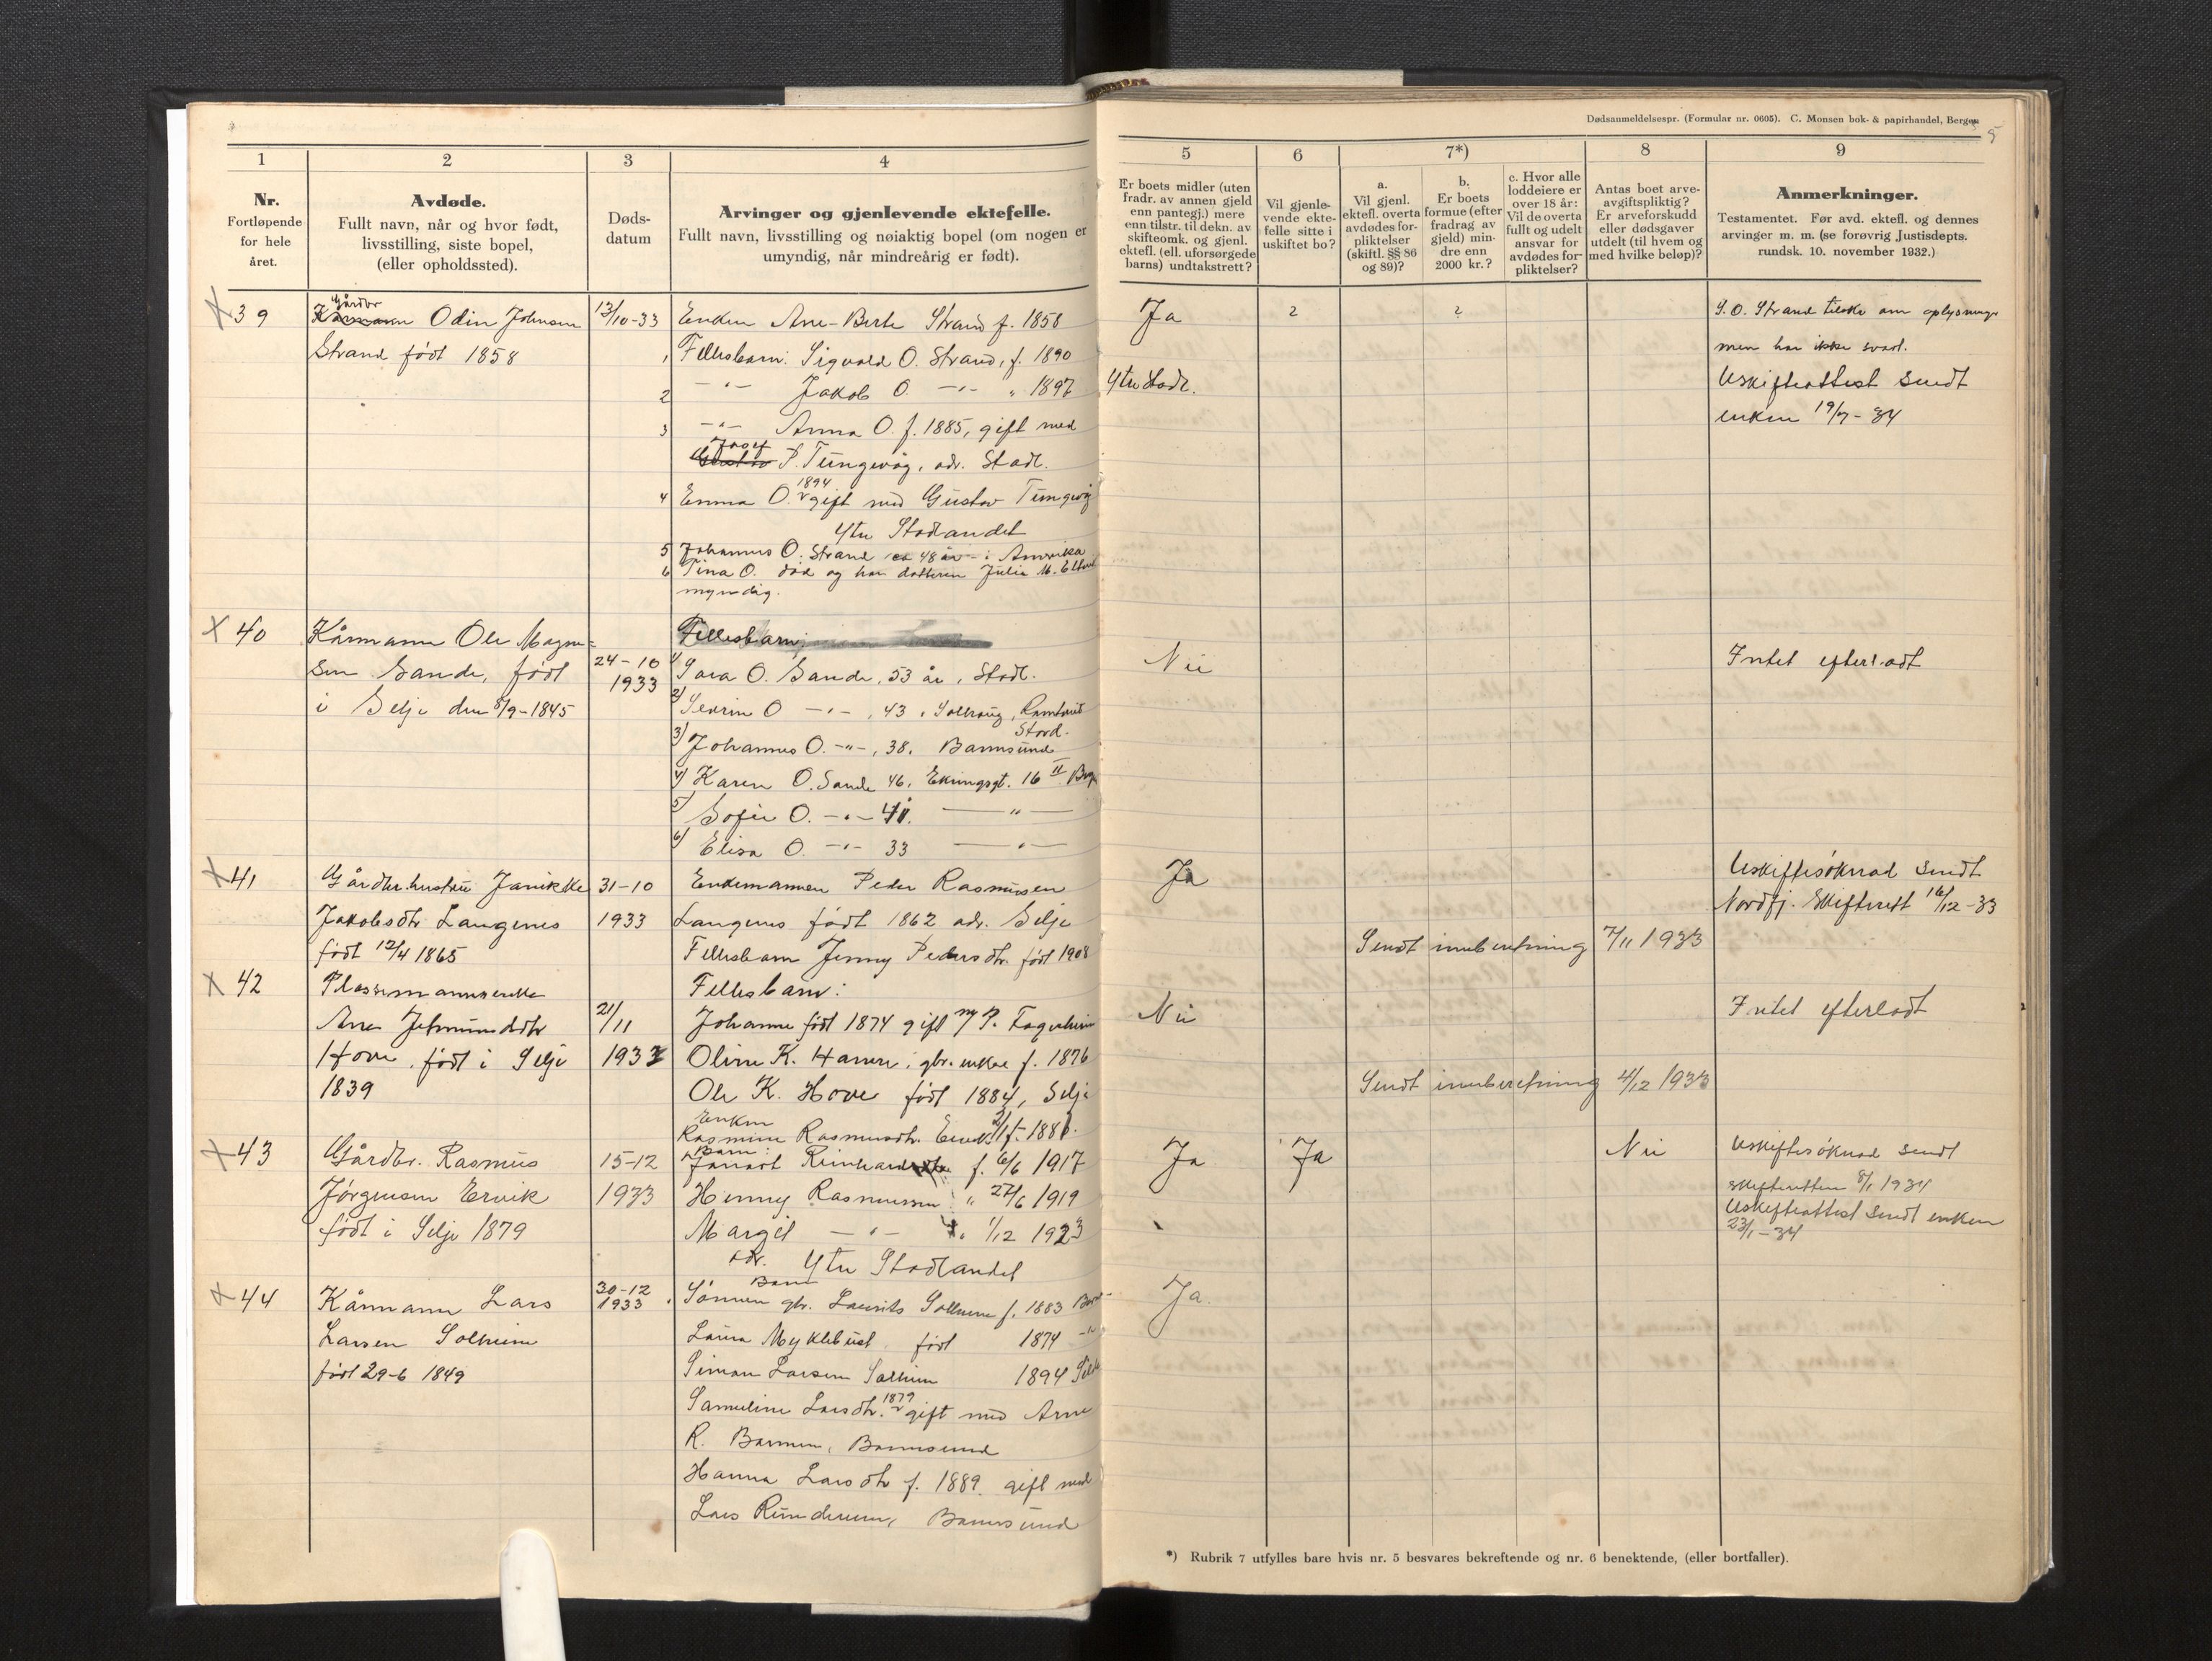 Dødsanmeldelsespr. (Formular nr. 0605). C. Monsen bok- & papirhandel, Bergen
5
1
2
3
4
Nr.
Fortløpende
for hele
året.
Avdøde.
Fullt navn, når og hvor født,
livsstilling, siste bopel,
(eller opholdssted).
Døds-
datum
Arvinger og gjenlevende ektefelle.
Fullt navn, livsstilling og nøiaktig bopel (om nogen er
umyndig, når mindreårig er født).
5
6
7*)
8
9
Er boets midler (uten
fradr. av annen gjeld
enn pantegj.) mere
enn tilstr. til dekn. av
skifteomk. og gjenl.
ektefl. (ell. uforsørgede
barns) undtakstrett?
Vil gjenle-
vende ekte-
felle sitte i
uskiftet bo?
a.
Vil gjenl.
ektefl. overta
avdødes for-
pliktelser
(skiftl. §§ 86
og 89)?
b.
Er boets
formue (efter
fradrag av
gjeld) min-
dre enn
2000 kr.?
c. Hvor alle
loddeiere er
over 18 år:
Vil de overta
fullt og udelt
ansvar for
avdødes for-
pliktelser?
Antas boet arve-
avgiftspliktig?
Er arveforskudd
eller dødsgaver
utdelt (til hvem og
med hvilke beløp)?
Anmerkninger.
Testamentet. Før avd. ektefl. og dennes
arvinger m. m. (se forøvrig Justisdepts.
rundsk. 10. november 1932.)
X 39
Gårdbr
Kårmann Odin Johnsen
Strand født 1858
13/10-33
Enken Ane-Berte Strand f. 1858
1 Fellesbarn: Sigvald O. Strand, f. 1890
2 -"- Jakob O. -"- " 1897
3 -"- Anna O. f. 1885, gift med
Josef
P. Tungevåg, adr. Stadl.
1894
4 Emma O. gift med Gustav Tungevåg
Ytre Stadlandet
5 Johannes O. Strand ca 48 år - i Amerika
6 Tina O. død og har datteren Julie M.
myndig.
Ja
2
2
Ytre Stadl.
S. O. Strand tilskr. om oplysninge
men har ikke svart.
Uskifteattest sendt
enken 19/7-34
X 40
Kårmann Ole Magne-
sen Sande, født
i Selje den 8/9-1845
24-10
1933
Fellesbarn:
1) Sara O. Sande, 53 år, Stadl.
2) Severin O -"-, 43,
Stord.
3) Johannes O. -"-, 38, Barmsund
4) Karen O. Sande 46, Ekrengsgt. 16 II Brgn
5) Sofie O. -"- 41. -"-
6) Elisa O. -"- 33 -"-
Nei
Intet efterladt
X 41
Gårdbr.hustru Janikke
Jakobsdtr. Langenes
født 12/4 1865
31-10
1933
Enkemannen Peder Rasmussen
Langenes født 1862 adr. Selje
Fellesbarn Jenny Pedersdtr. født 1908
Ja
Sendt innberetning 7/11 1933
Uskiftesøknad sendt
Nordfj. Skifterett 16/12-33
X 42
Plassemannsenke
Ane Jetmundsdtr
Hove, født i Selje
1839
21/11
1933
Fellesbarn:
Johanne født 1874 gift m/ P. Fagerheim
Oline K. Hamre, gbr. enke f. 1876
Ole K. Hove født 1884, Selje
Nei
Sendt innberetning 4/12 1933
Intet efterladt
X 43
Gårdbr. Rasmus
Jørgensen Ervik
født i Selje 1879
15-12
1933
Enken
Rasmine Rasmusdtr. f. 188
Barn:
f. 6/6 1917
Henny Rasmussen " 27/6 1919
Margit -"- " 1/12 1923
adr. Ytre Stadlandet
Ja
Ja
Nei
Uskiftesøknad sendt
skifteretten 8/1 1934
Uskifteattest sendt enken
23/1-34
X 44
Kårmann Lars
Larsen Solheim
født 29-6 1849
30-12
1933
Barn
Sønnen gbr. Laurits Solheim f. 1883
Laura Myklebust født 1874 -"-
Simon Larsen Solheim 1894
1879
Samuline Larsdtr. gift med Arne
R. Barmen, Barmsund
Hanna Larsdtr f. 1889. gift med
Lars Rundereim, Barmsund
Ja.
*) Rubrik 7 utfylles bare hvis nr. 5 besvares bekreftende og nr. 6 benektende, (eller bortfaller).